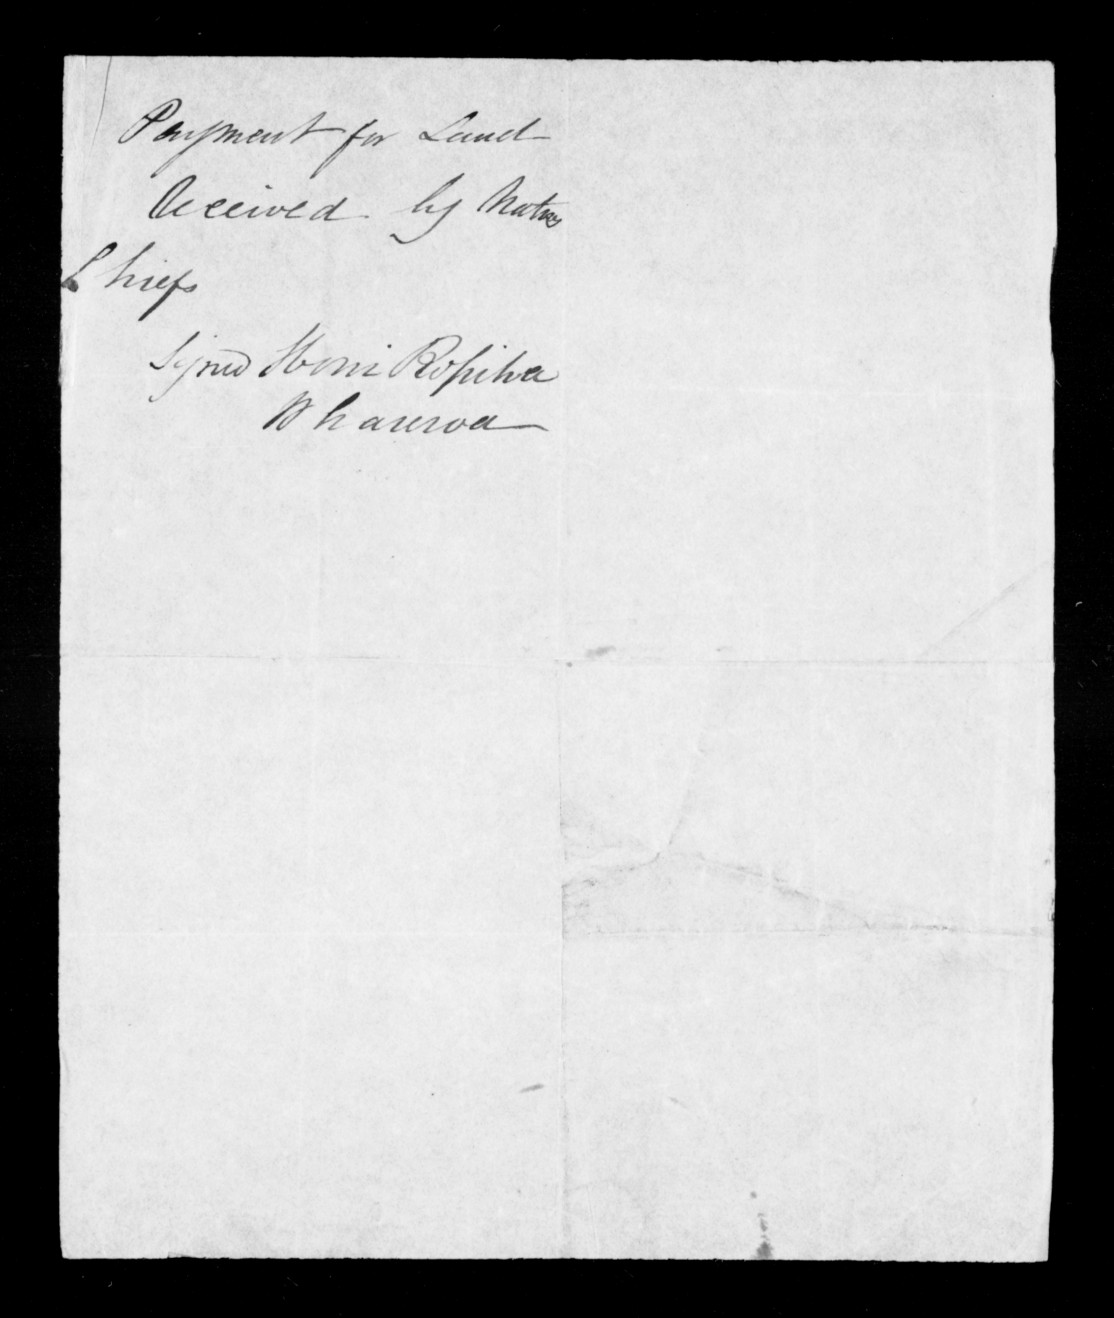 Payment for Land
Received by Native
Chiefs
Signed Honi Ropiha
Whareroa